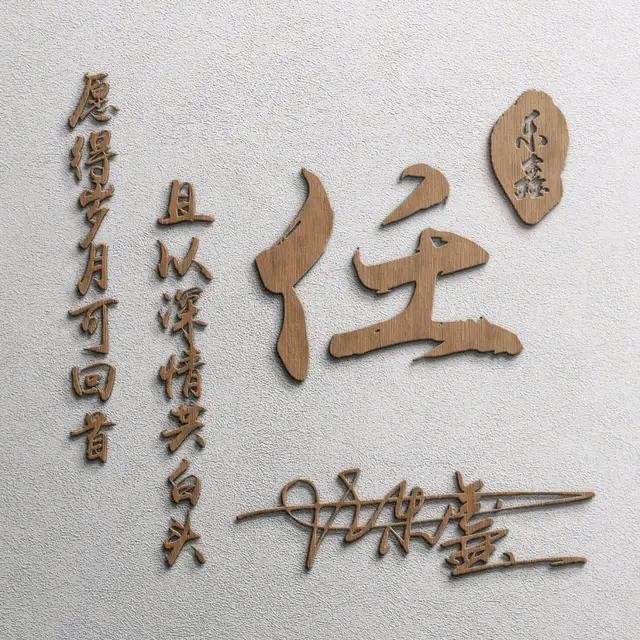 愿得岁月可回首
且以深情共白头
任
乐鑫